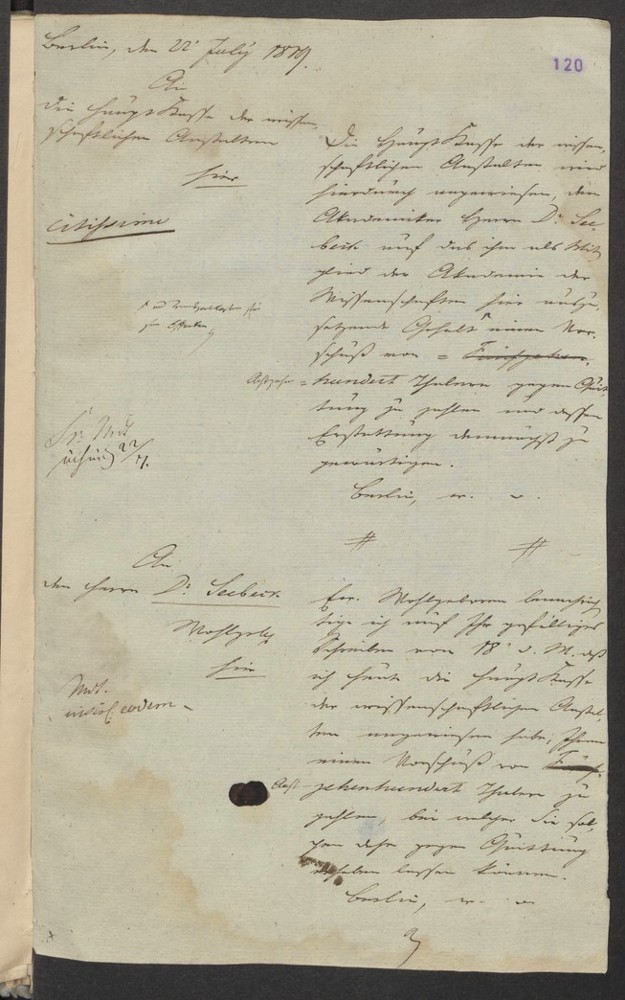 120
Berlin, den 22t July 1819.
An
die Haupt Kasse der wissen-
schaftlichen Anstalten
hier
citissime
Die Haupt Kasse der wissen-
schaftlichen Anstalten wird
hierdurch angewiesen, dem
Akademiker Herrn Dr. See-
beck auf das ihm als Mit-
glied der Akademie der
Wissenschaften hier auszu-
setzende Gehalt einen Vor-
schuß von = Funfzehn-
Achtzehn = hundert Thalern gegen Quit-
tung zu zahlen und dessen
Erstattung demnächst zu
gewärtigen.
Berlin,
An
den Herrn Dr. Seebeck
Wohlgeb.
hier
Ew. Wohlgeboren benachrich-
tige ich auf Ihr gefälliges
Schreiben vom 18t d. M. daß
ich heute die Haupt Kasse
der wissenschaftlichen Anstal-
ten angewiesen habe, Ihnen
einen Vorschuß von Funf-
Acht- zehnhundert Thalern zu
zahlen, bei welcher Sie sol-
chen gegen Quittung
erheben lassen können.
Berlin,